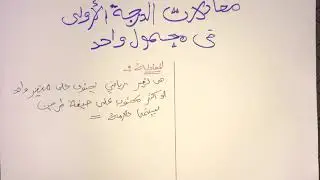 معادلات الدرجة الأولى
في مجهول واحد
المعادلة :
هي تعبير رياضي يحتوي على متغير واحد
أو أكثر مكتوب على صيغة طرفين
بينهما علامة =